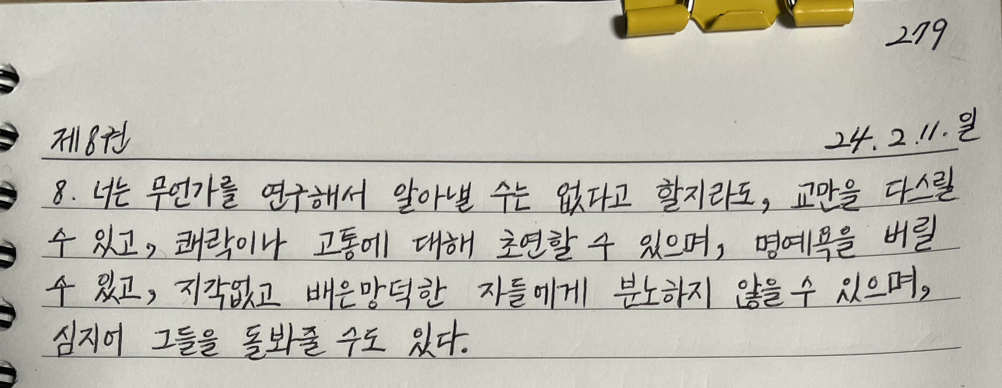 279
제8권 24. 2. 11. 일
8. 너는 무언가를 연구해서 알아낼 수는 없다고 할지라도, 교만을 다스릴
수 있고, 쾌락이나 고통에 대해 초연할 수 있으며, 명예욕을 버릴
수 있고, 지각없고 배은망덕한 자들에게 분노하지 않을 수 있으며,
심지어 그들을 돌봐줄 수도 있다.